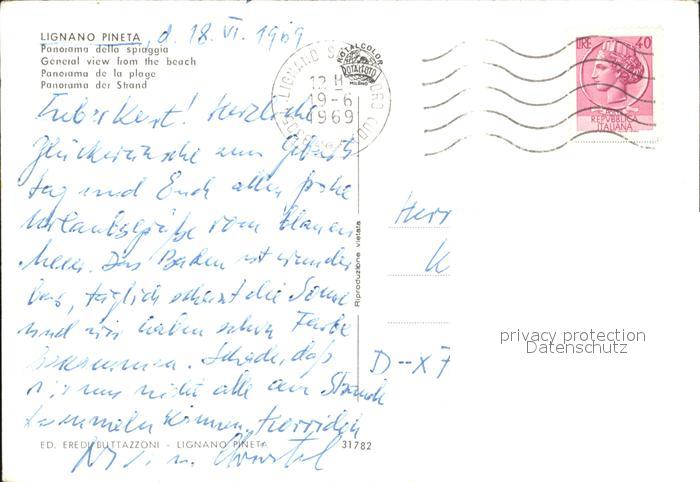 LIGNANO PINETA, d. 18. VI. 1969
Panorama della spiaggia
General view from the beach
Panorama de la plage
Panorama der Strand
Lieber Kurt! Herzliche
Glückwünsche zum Geburts
tag und Euch allen frohe
Urlaubsgrüße vom blauen
Meer. Das Baden ist wunder
bar, täglich scheint die Sonne
und wir haben schon Farbe
bekommen. Schade, daß
wir uns nicht alle am Strande
tummeln können. Herzlich
u. Christl
ED. EREDI BUTTAZZONI - LIGNANO PINETA 31782
Riproduzione vietata
ROTALCOLOR
ROTALFOTO
MILANO
LIGNANO
12 H
19-6
1969
LIRE 40
REPVBBLICA
ITALIANA
Herr
K
D--X7
privacy protection
Datenschutz